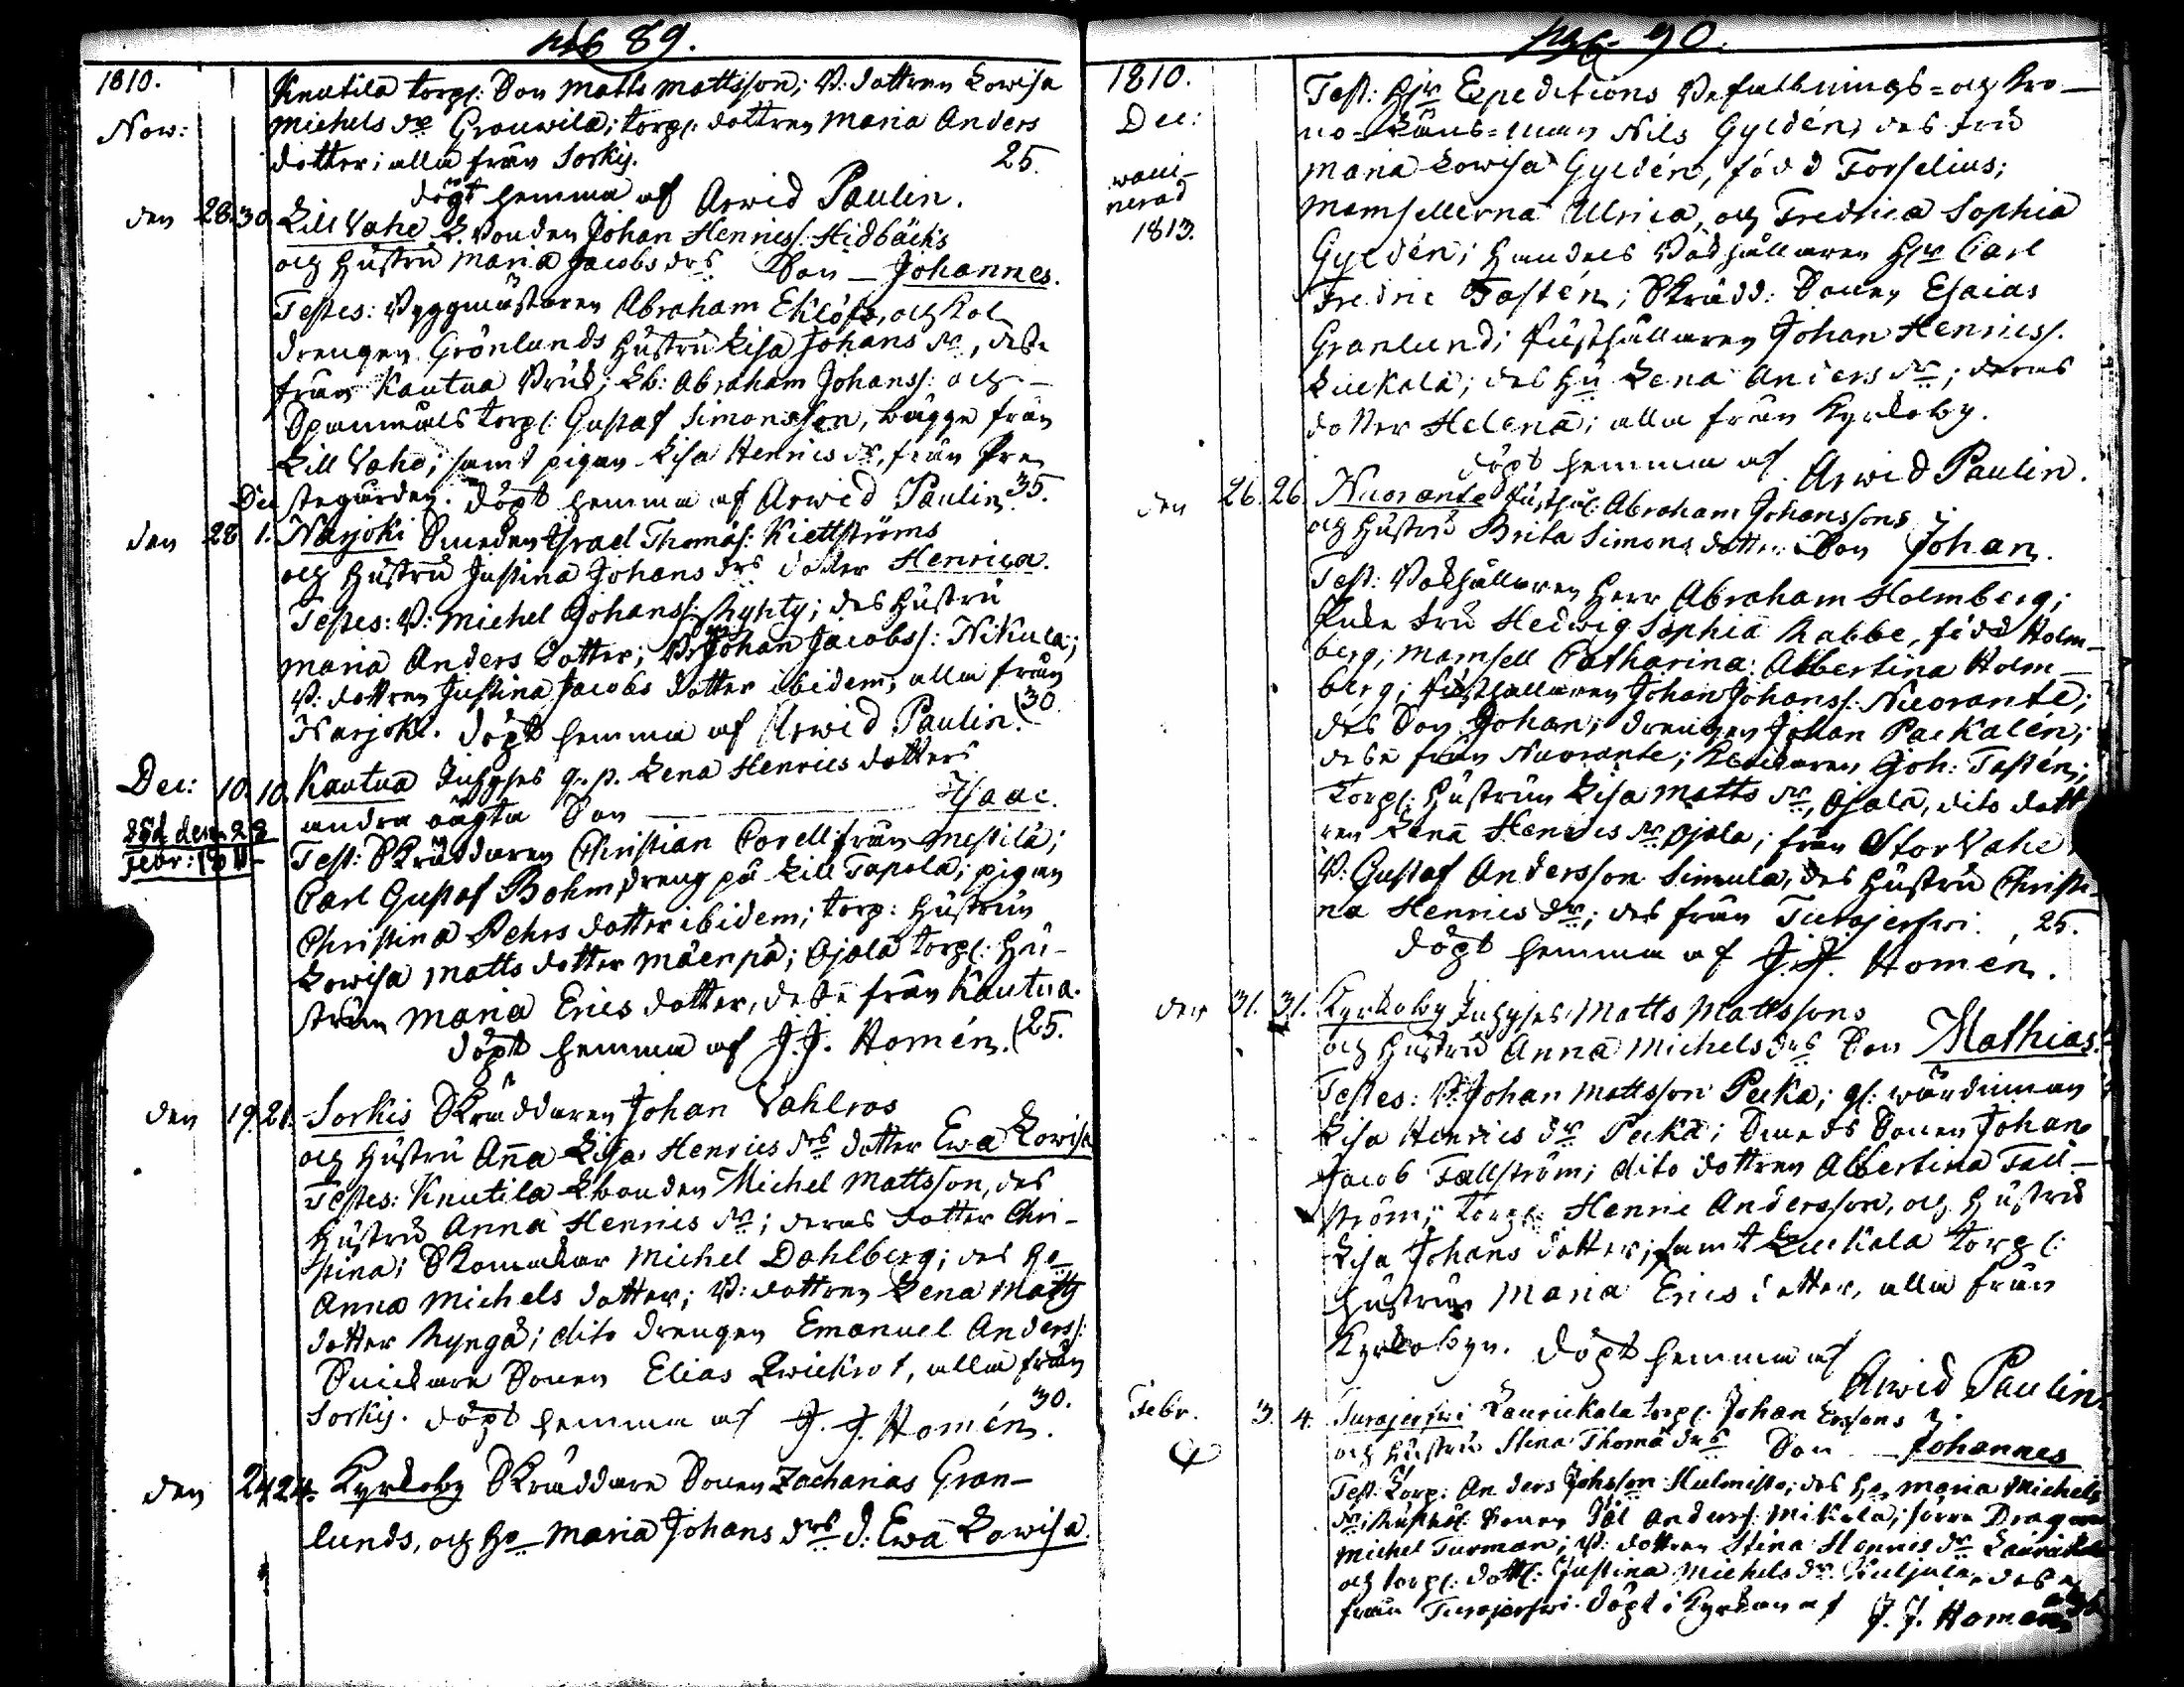 pag 89.
1810.
Nov:
Knutila torp: Son Matts Mattsson; B: dottren Lowisa
Michels dr Grouwila; torp: dottren Maria Anders
dotter; alla från Sorkis. 25.
döpt hemma af Arwid Paulin.
den 28. 30. Lill Vahe L. Bonden Johan Henricss: Hidbäcks
och Hustru Maria Jacobs drs Son – Johannes.
Testes: Byggmästaren Abraham Eklöf, och Kol
drengen Grönlunds Hustru Lisa Johans dr, desse
från Kautua Bruk; Lb: Abraham Johanss: och –
Spanmåls torp: Gustaf Simonsson, bägge från
Lill Vahe; samt pigan Lisa Henrics dr, från Pre
stegården. döpt hemma af Arwid Paulin. 35.
Dec
den 28 1. Narjoki Smeden Israel Thomæs: Kiettströms
och Hustru Justina Johans drs dotter Henrica.
Testes: B: Michel Johanss: Ryhty; des Hustru
Maria Anders dotter; Johan Jacobss: Nikula;
B: dottren Justina Jacobs dotter ibidem; alla från
Narjoki. döpt hemma af Arwid Paulin. (30.
Dec: 10. 10. Kautua Inhyses q. p. Lena Henrics dotters
andra oägta Son – Isaac.
död den 28
Febr: 1811
Test: Skräddaren Christian Corell från Mestilä;
Carl Gustaf Bohm, dreng på Lill Tapola; pigan
Christina Pehrs dotter ibidem; torp: Hustrun
Lowisa Matts dotter Mäenpä; Ojala torp: Hu-
strun Maria Erics dotter, desse från Kautua.
döpt hemma af J. J. Homén. (25.
den 19. 21. Sorkis Skräddaren Johan Vahlros
och Hustru Anna Lisa Henrics drs dotter Ewa Lowisa
Testes: Knutila Lbonden Michel Mattsson, des
Hustru Anna Henrics dr; deras dotter Chri-
stina; Skomakar Michel Dahlberg; des Hu
Anna Michels dotter; B: dottren Lena Matts
dotter Ryngä; dito drengen Emanuel Anders:
Snickare Sonen Elias Qwickrot, alla från
Sorkis. döpt hemma af J. J. Homén. 30.
den 24 24. Kyrkoby Skräddare Sonen Zacharias Gran-
lunds, och Hu Maria Johans drs d: Ewa Lowisa.
pag. 90.
1810.
Dec:
vacci-
nerad
1813.
Test: Hr Expeditions Befallnings- och Kro-
no-Läns-man Nils Gyldén, des Fru
Maria Lowisa Gyldén, född Forselius;
Mamsellerna Ulrica, och Fredrica Sophia
Gyldén; Handels Bokhållaren Hr Carl
Fredric Tastén; Skrädd: Sonen Esaias
Granlund; Rusthållaren Johan Henricss:
Luckala; des Hu Lena Anders dr; deras
dotter Helena; alla från Kyrkoby.
döpt hemma af Arwid Paulin.
den 26. 26. Nuorante Rusthål: Abraham Johanssons
och Hustru Brita Simons dotter: Son Johan.
Test: Bokhållaren Herr Abraham Holmberg;
Enke Fru Hedwig Sophia Rabbe, född Holm-
berg; Mamsell Catharina Albertina Holm-
berg; Rusthållaren Johan Johanss: Nuorante;
des Son Johan; drengen Johan Packalén;
desse från Nuorante; Klockaren Joh: Tastén;
Torp: Hustrun Lisa Matts dr, Ojala, dito dott
ren Lena Henrics dr Ojala; från Stor Vahe
B: Gustaf Andersson Simula, des Hustru Christi-
na Henrics dr; des från Turajerfwi. 25.
döpt hemma af J. J. Homén.
den 31. 31. Kyrkoby Inhyses Matts Mattssons
och Hustru Anna Michels drs Son Mathias.
Testes: B: Johan Mattsson Pecka; gl: wärdinnan
Lisa Henrics dr Pecka; Smeds Sonen Johan
Jacob Fallström; dito dottren Albertina Fall-
ström; torp: Henric Andersson, och Hustru
Lisa Johans dotter; samt Luckala torp:
Hustrun Maria Erics dotter, alla från
Kyrkobyn. döpt hemma af
Arwid Paulin.
Febr. 3. 4. Turajerfwi Laurickala torp: Johan Ersons
och Hustru Stina Thomæ drs Son – Johannes
Test: Torp: Anders Johsson Hulmisto; des Hu Maria Michels
dr; Rusthål: Sonen Joel Anderss: Mikola; förra Dragon
Michel Turman; B: dottren Stina Henrics dr Laurickala
och torp: dott: Justina Michels dr desse
från Turajerfwi. döpt i Kyrkan af J. J. Homén